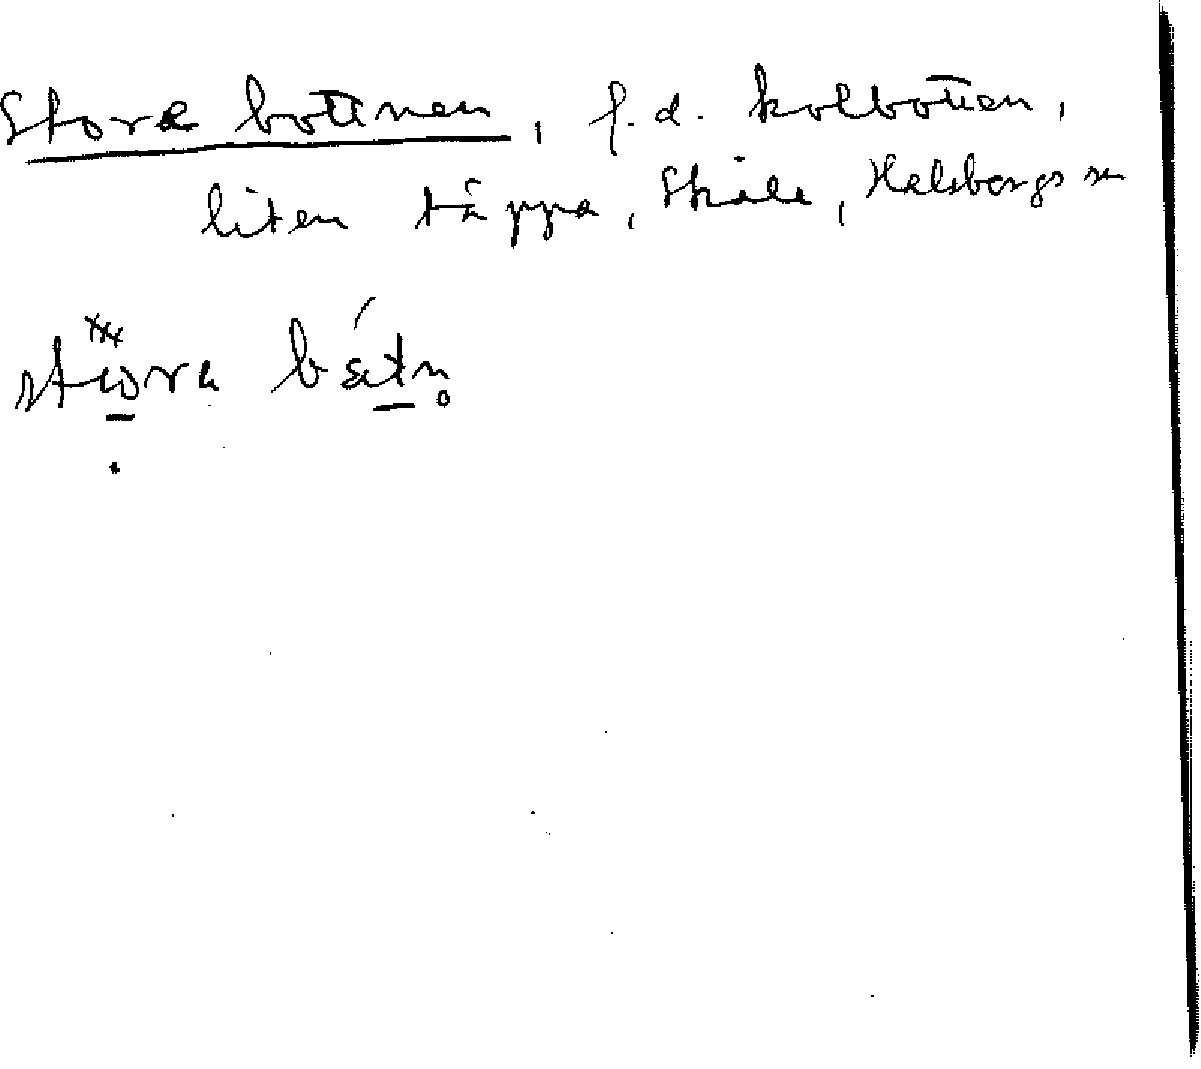 Stora bottnen, f.d. kolbotten,
liten täppa, Skåle, Halsbergs sn
stωra båtn̥